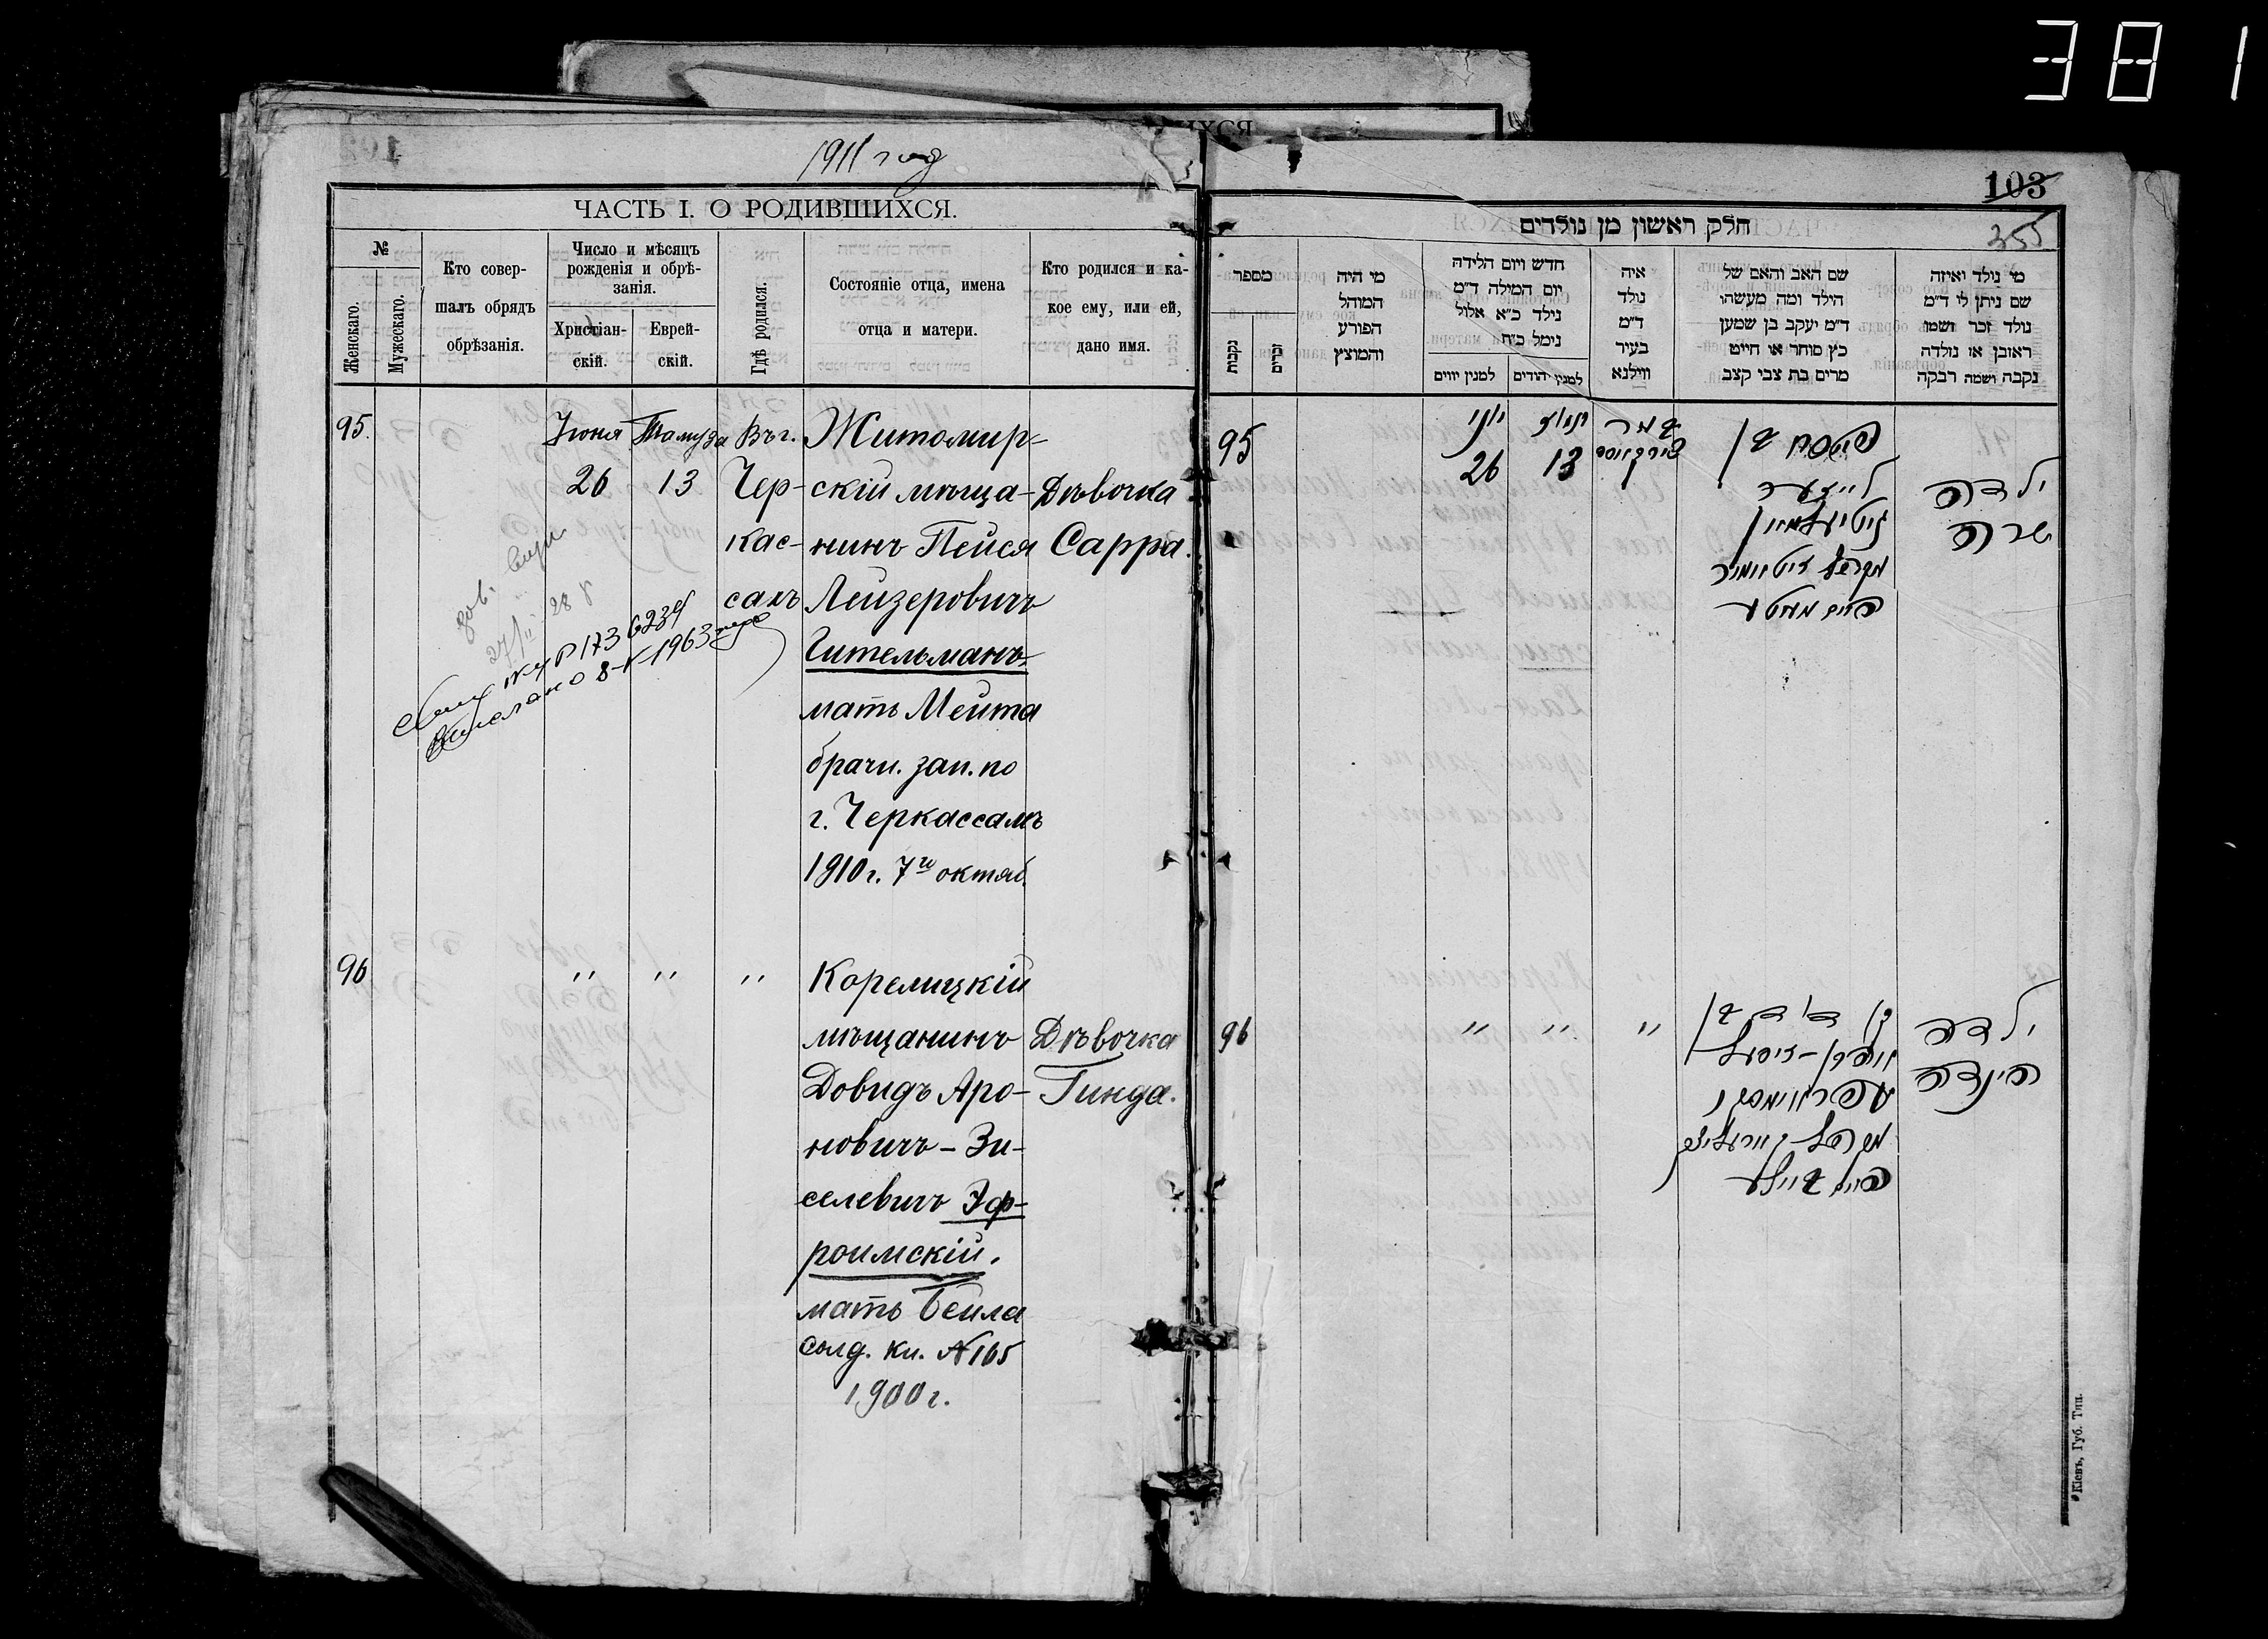 381
1911 год
ЧАСТЬ I. О РОДИВШИХСЯ.
№
Женскаго.
Мужескаго.
Кто совер-
шалъ обрядъ
обрѣзанія.
Число и мѣсяцъ
рожденія и обрѣ-
занія.
Христіан-
скій.
Еврей-
скій.
Гдѣ родился.
Состояніе отца, имена
отца и матери.
Кто родился и ка-
кое ему, или ей,
дано имя.
95.
Іюня
26
Тамуза
13
Въ г.
Чер-
кас-
сахъ
Житомир-
скій мѣща-
нинъ Пейся
Лейзеровичъ
Гительманъ
мать Мейта
брачн. зап. по
г. Черкассамъ
1910 г. 7го октяб.
Дѣвочка
Сарра.
173 6234
8-V-1963
96
" " "
Корелицкій
мѣщанинъ
Довидъ Аро-
новичъ-Зи-
селевичъ Эф-
роимскій.
мать Бейла
1900 г.
Дѣвочка
Гинда.
103
355
חלק ראשון מן נולדים
מספר
נקבות
זכרים
מי היה
המוהל
הפורע
והמוצץ
חדש ויום הלידה
יום המילה ד"מ
נילד כ"א אלול
נימל כ"ח
למנין יווים
למנין יהודים
איה
נולד
ד"מ
בעיר
ווילנא
שם האב והאם של
הילד ומה מעשהו
ד"מ יעקב בן שמען
כץ סוחר או חייט
מרים בת צבי קצב
מי נולד ואיזה
שם ניתן לו ד"מ
נולד זכר ושמו
ראובן או נולדה
נקבה ושמה רבקה
95
יוני
26
תמוז
13
פייסח בן
לייזער
גיטעלמאן
ילדה
שרה
96
" " "
ילדה
הינדה
Кіевъ, Губ. Тип.